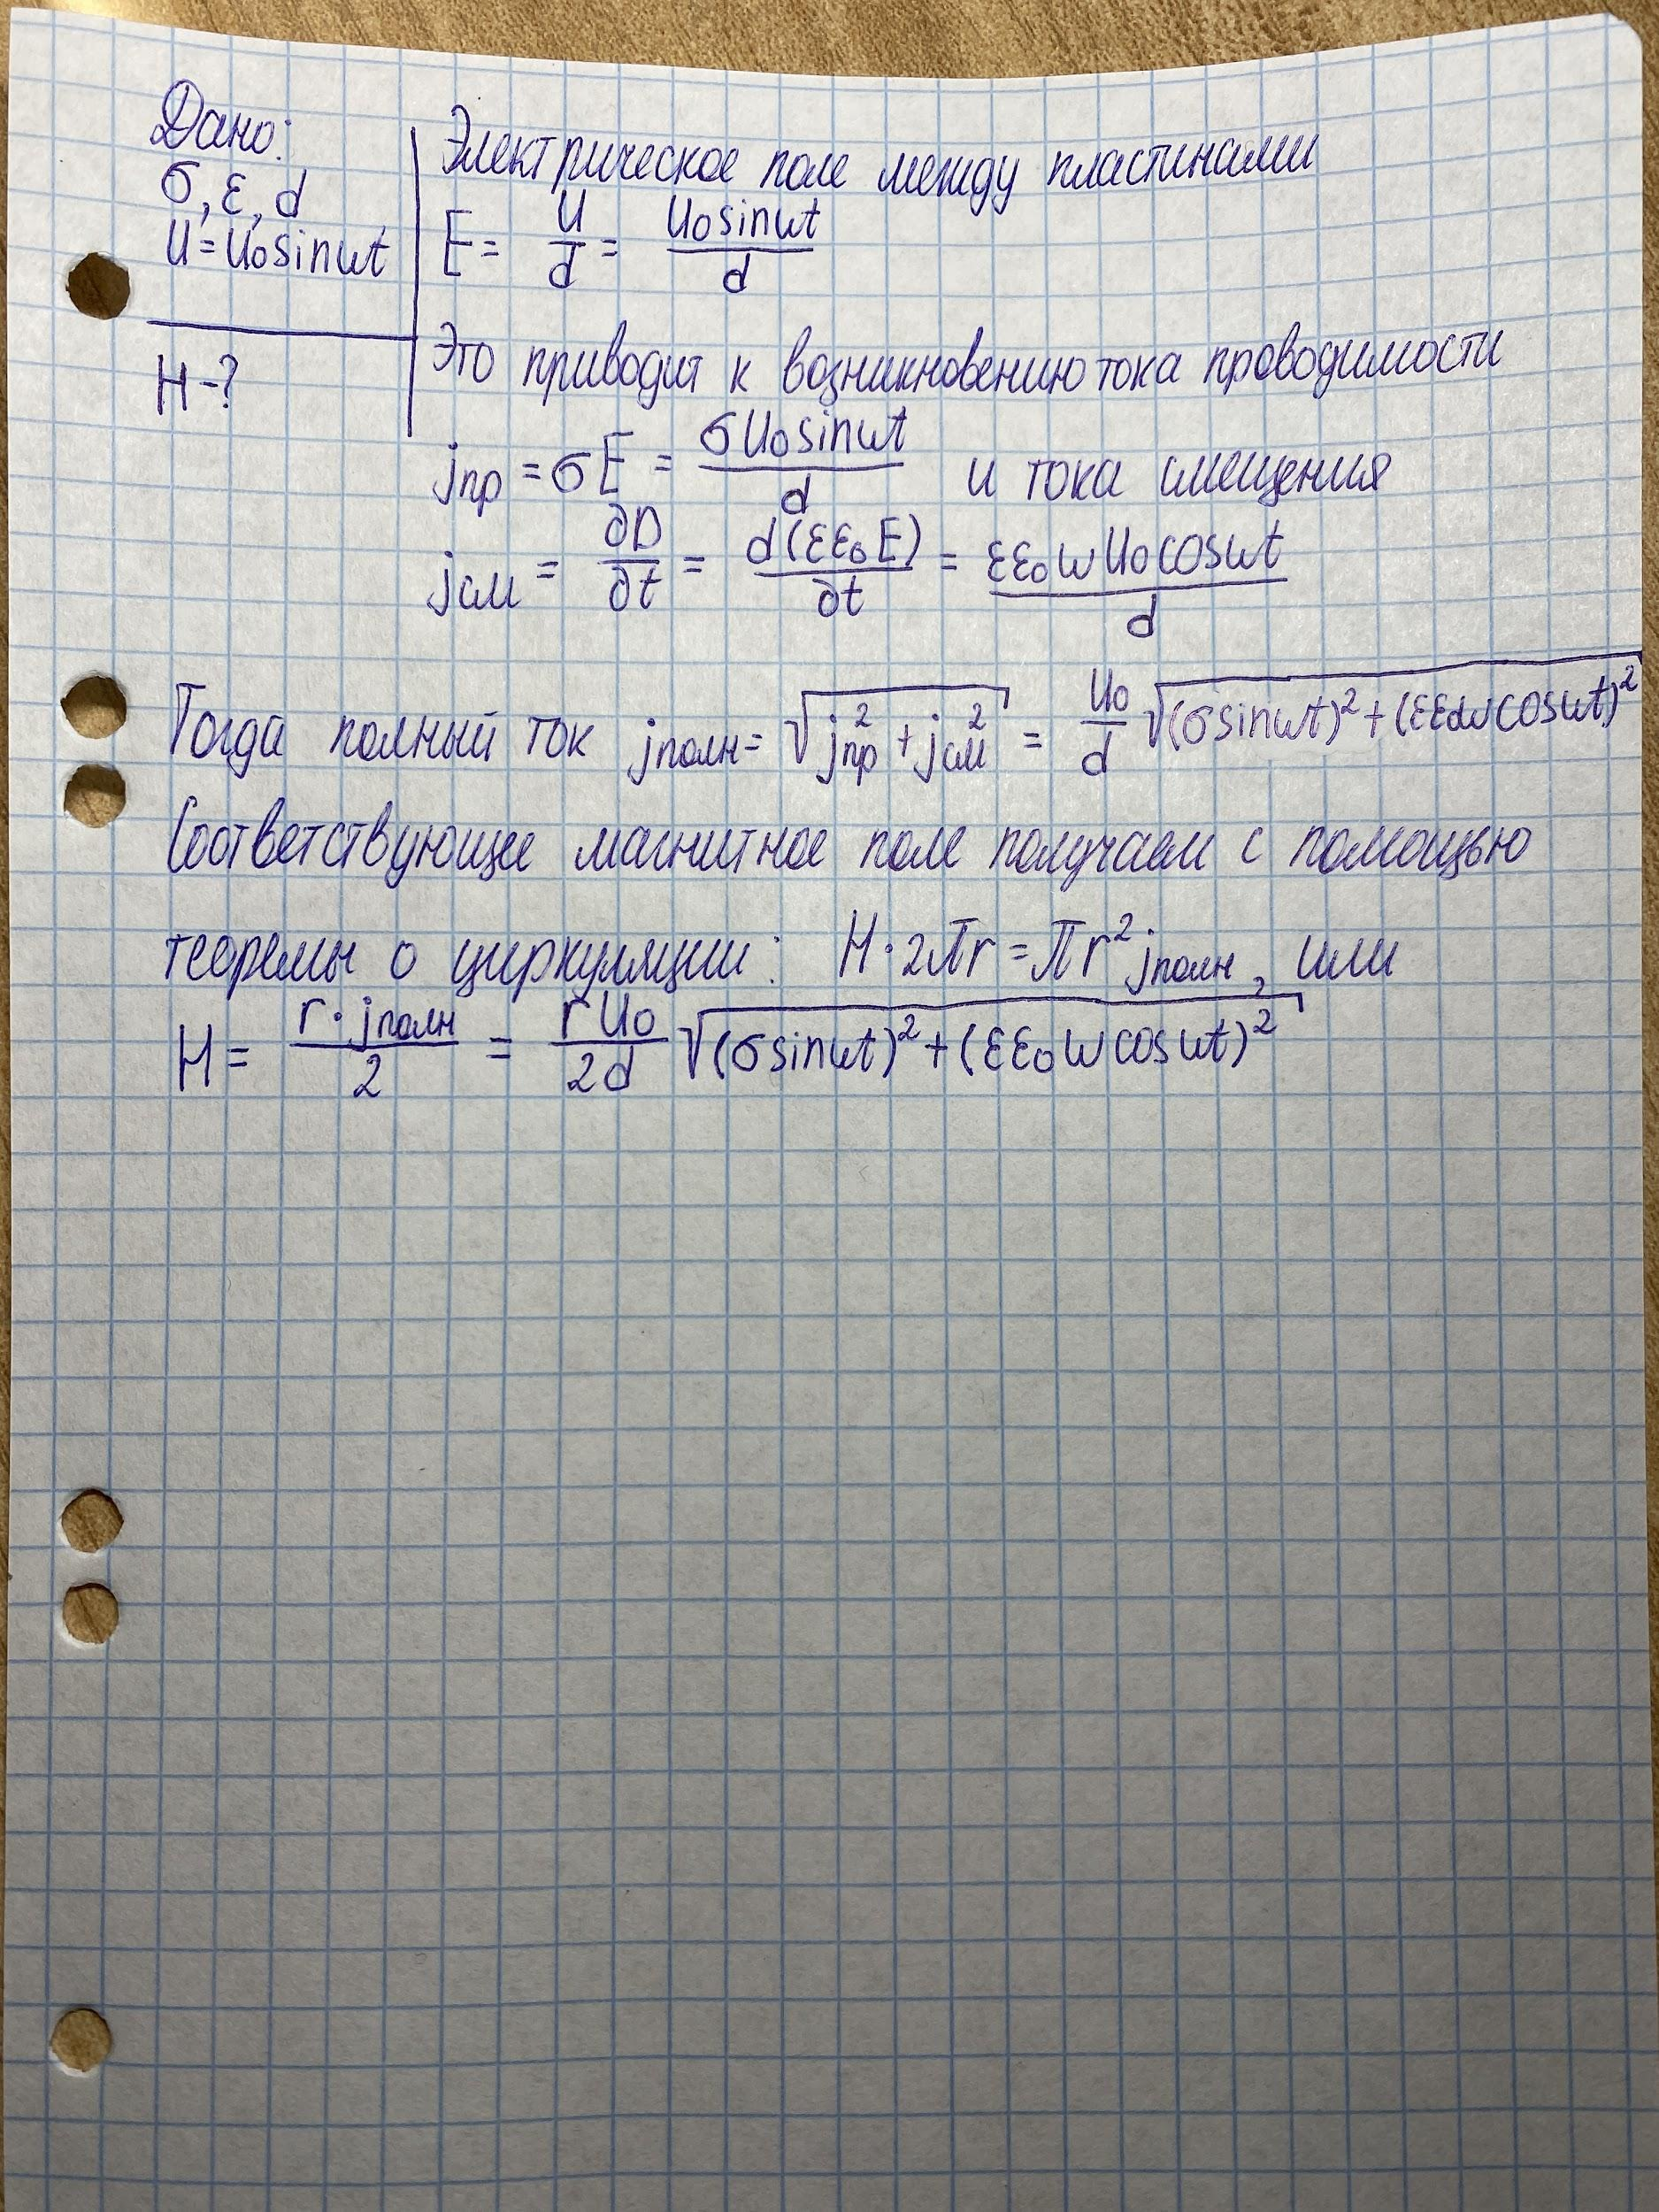 Дано:
σ, ε, d
U = U₀sinωt
H - ?
Электрическое поле между пластинами
E = U/d = U₀sinωt/d
Это приводит к возникновению тока проводимости
jпр = σE = σU₀sinωt/d и тока смещения
jсм = ∂D/∂t = d(εε₀E)/∂t = εε₀ωU₀cosωt/d
Тогда полный ток jполн = √(jпр² + jсм²) = U₀/d √((σsinωt)² + (εε₀ωcosωt)²)
Соответствующее магнитное поле получаем с помощью
теоремы о циркуляции: H·2πr = πr²jполн, или
H = r·jполн/2 = rU₀/2d √((σsinωt)² + (εε₀ωcosωt)²)